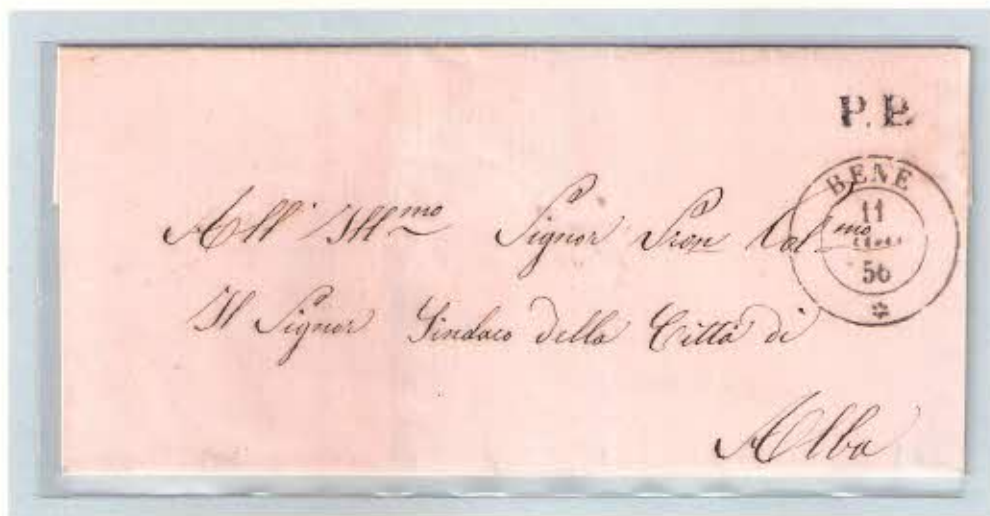 P.P.
BENE
11
56
All' Illmo Signor Pron Colmo
Il Signor Sindaco della Città di
Alba